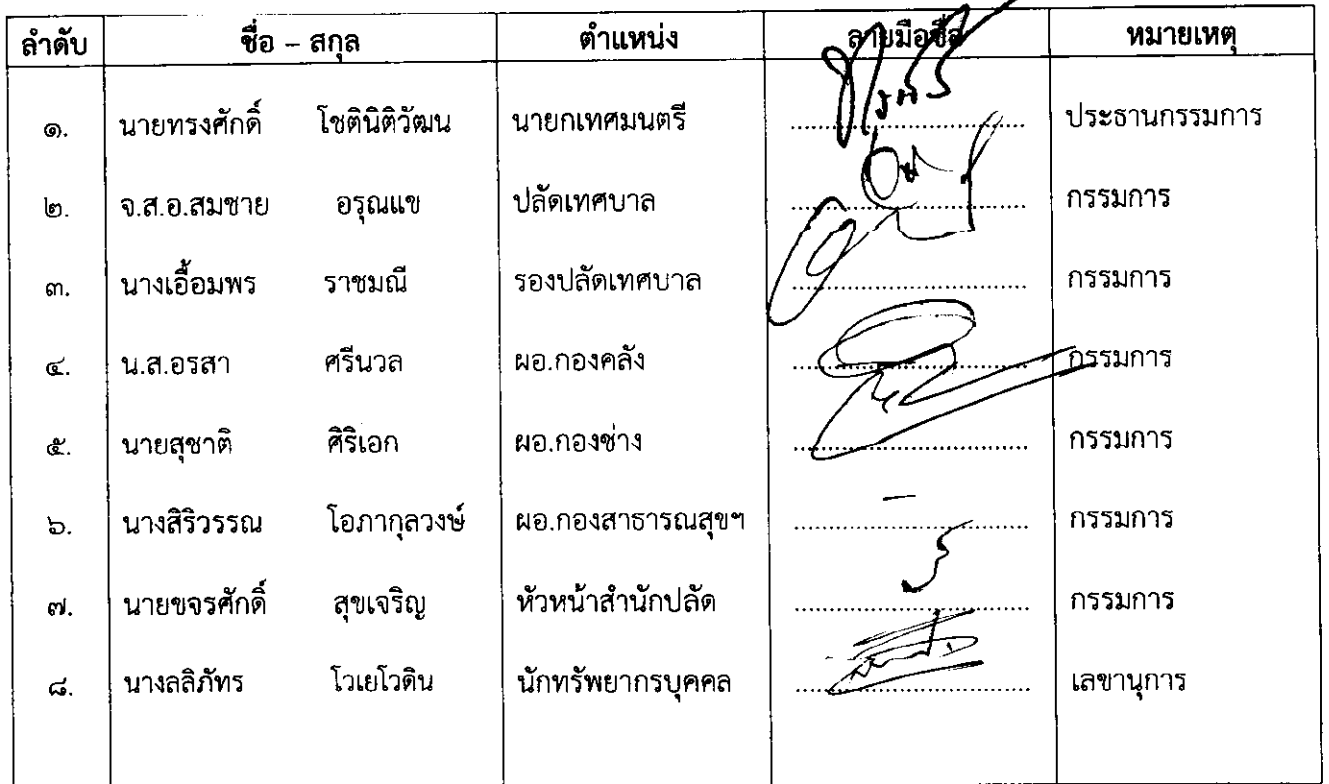 ลำดับ ชื่อ – สกุล ตำแหน่ง ลายมือชื่อ หมายเหตุ
๑. นายทรงศักดิ์ โชตินิติวัฒน นายกเทศมนตรี ประธานกรรมการ
๒. จ.ส.อ.สมชาย อรุณแข ปลัดเทศบาล กรรมการ
๓. นางเอื้อมพร ราชมณี รองปลัดเทศบาล กรรมการ
๔. น.ส.อรสา ศรีนวล ผอ.กองคลัง กรรมการ
๕. นายสุชาติ ศิริเอก ผอ.กองช่าง กรรมการ
๖. นางสิริวรรณ โอภากุลวงษ์ ผอ.กองสาธารณสุขฯ กรรมการ
๗. นายขจรศักดิ์ สุขเจริญ หัวหน้าสำนักปลัด กรรมการ
๘. นางลลิภัทร โวเยโวดิน นักทรัพยากรบุคคล เลขานุการ